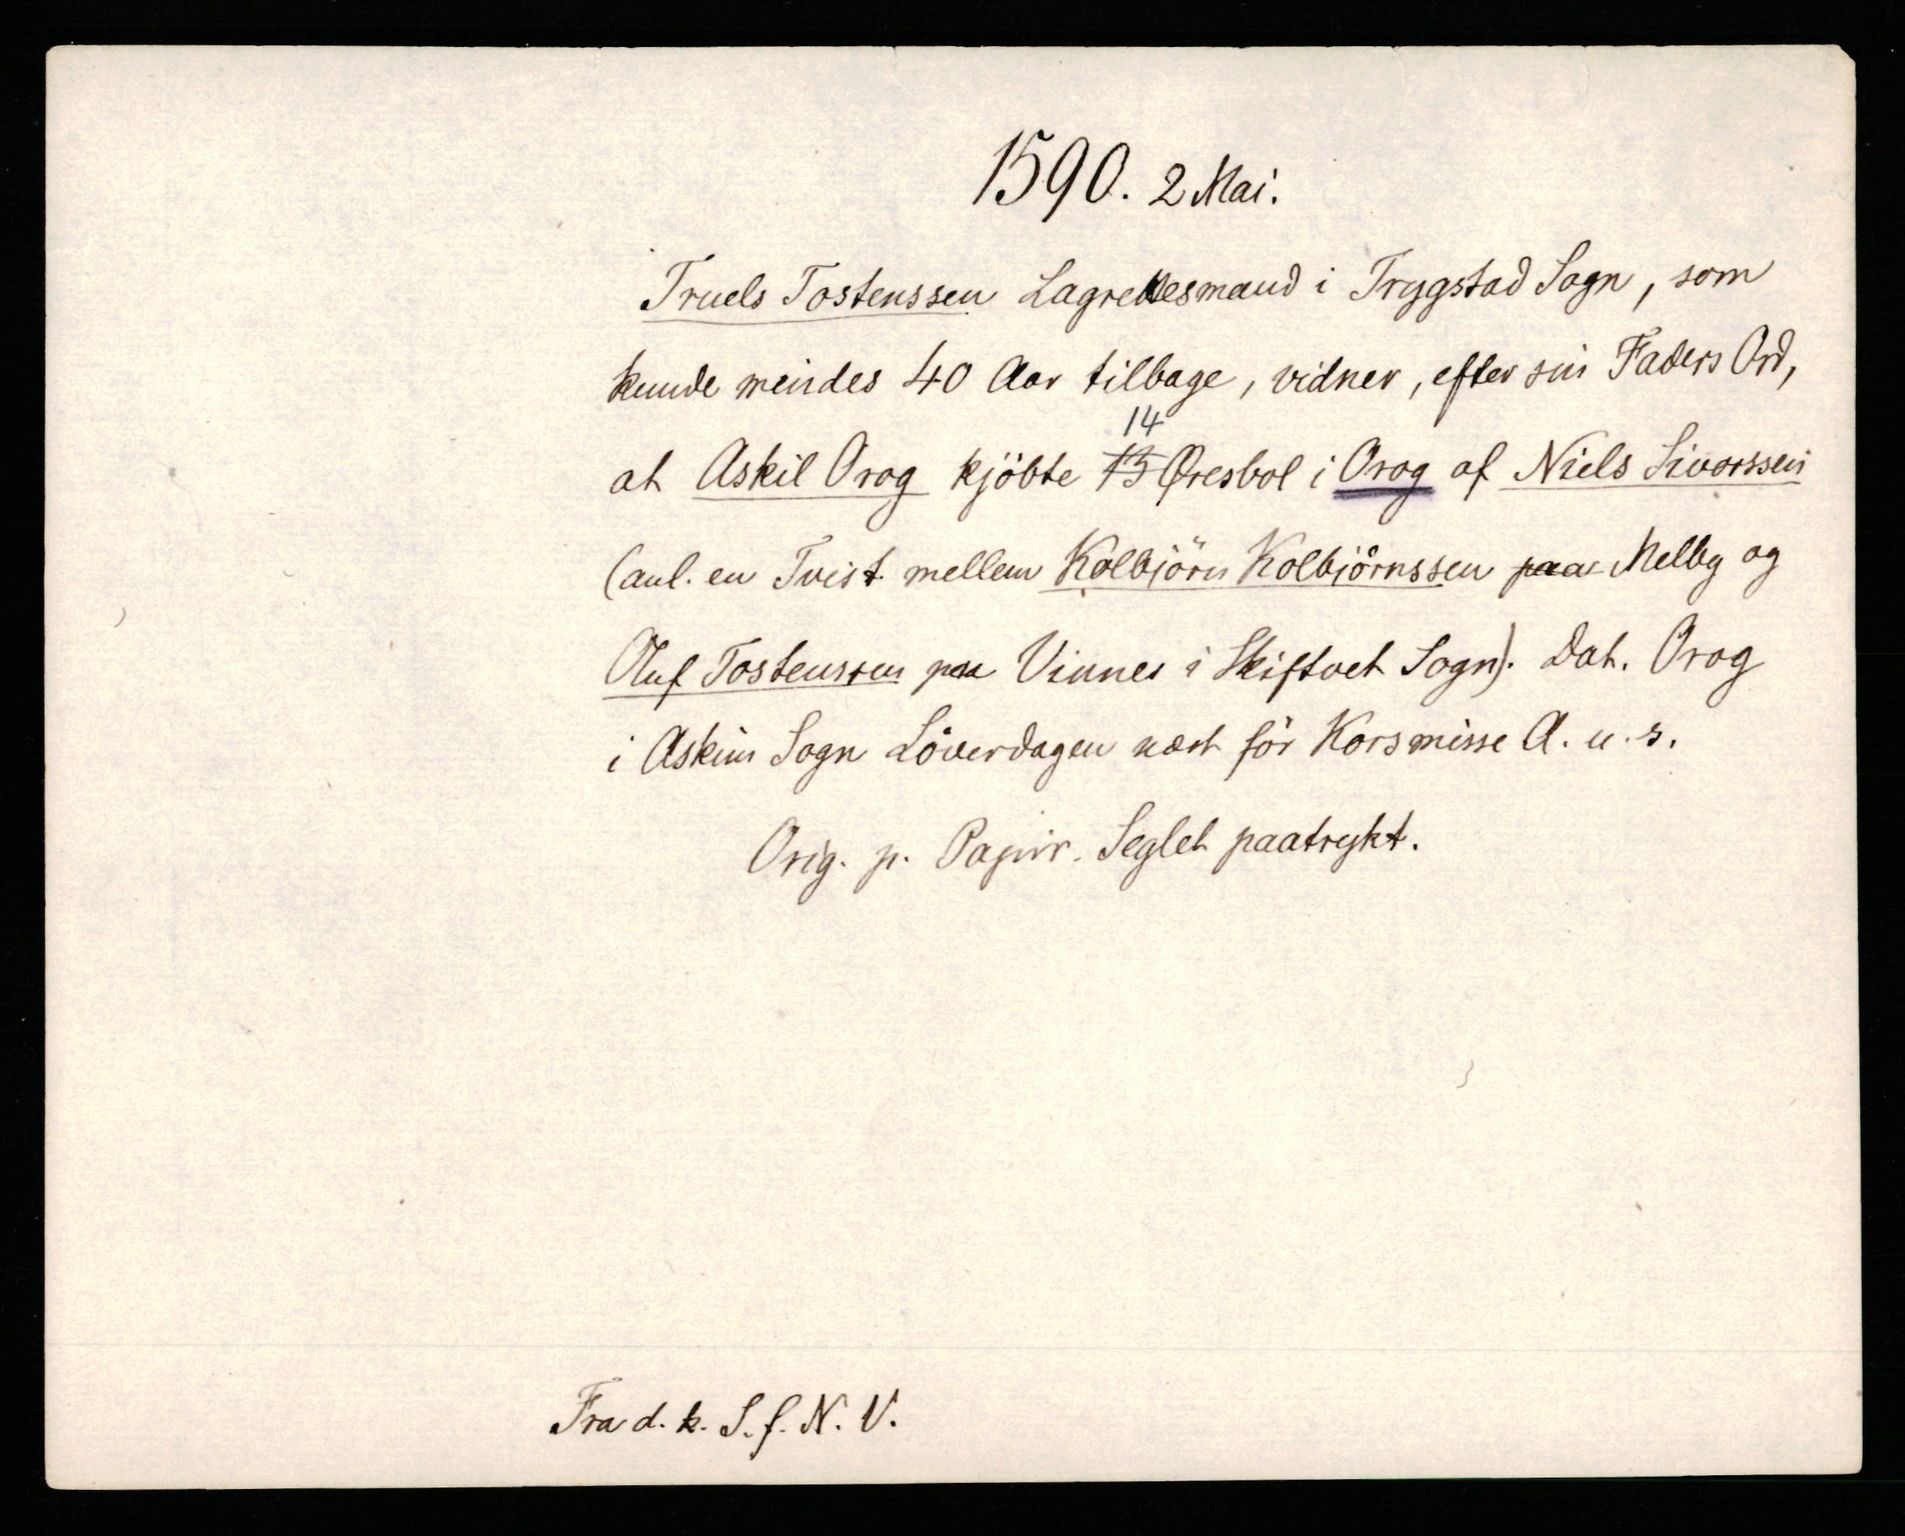 1590. 2 Mai.
Truels Tostenssen Lagrettesmand i Trygstad Sogn, som
kunde mindes 40 Aar tilbage, vidner, efter sin Faders Ord,
14
at Askil Orog kjöbte 13 Øresbol i Orog af Niels Sivorssen
(anl. en Tvist mellem Kolbjörn Kolbjörnssen paa Melby og
Oluf Tostenssen paa Vinnes i Skiftvet Sogn). Dat. Orog
i Askim Sogn Löverdagen næst för Korsmisse A. u. s.
Orig. p. Papir. Seglet paatrykt.
Fra d. k. S. f. N. V.